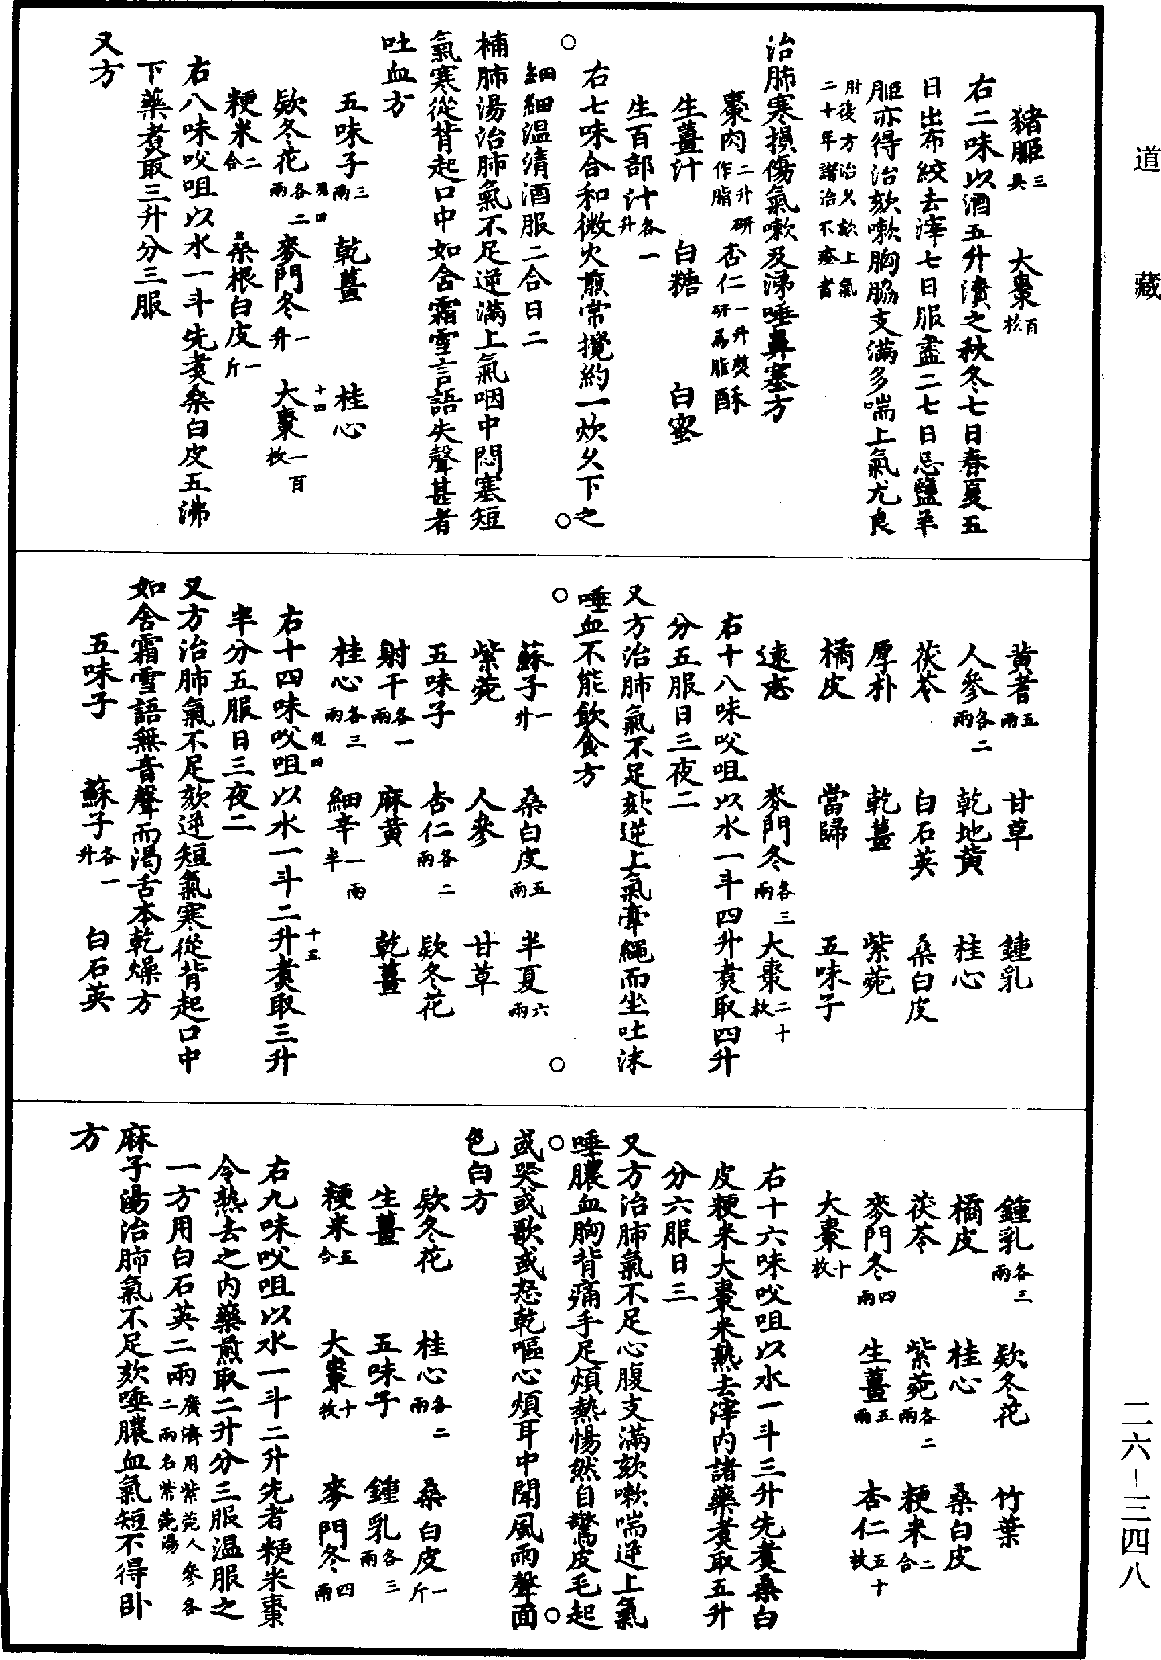 道藏
豬胵三具　大棗百枚
右二味以酒五升漬之秋冬七日春夏五
日出布絞去滓七日服盡二七日忌鹽羊
胵亦得治欬嗽胸脇支滿多喘上氣尤良
肘後方治久欬上氣
二十年諸治不瘥者
治肺寒損傷氣嗽及涕唾鼻塞方
棗肉二升研作脂　杏仁一升熬研為脂　酥
生薑汁　白糖　白蜜
生百部汁各一升
右七味合和微火煎常攪約一炊久下之
細細溫清酒服二合日二
補肺湯治肺氣不足逆滿上氣咽中悶塞短
氣寒從背起口中如含霜雪言語失聲甚者
吐血方
五味子三兩　乾薑　桂心
欵冬花各二兩　麥門冬一升　大棗一百枚
粳米二合　桑根白皮一斤
右八味㕮咀以水一斗先煮桑白皮五沸
下藥煮取三升分三服
又方
黃耆五兩　甘草　鍾乳
人參各二兩　乾地黃　桂心
茯苓　白石英　桑白皮
厚朴　乾薑　紫菀
橘皮　當歸　五味子
遠志　麥門冬各三兩　大棗二十枚
右十八味㕮咀以水一斗四升煮取四升
分五服日三夜二
又方治肺氣不足欬逆上氣牽繩而坐吐沫
唾血不能飲食方
蘇子一升　桑白皮五兩　半夏六兩
紫菀　人參　甘草
五味子　杏仁各二兩　欵冬花
射干各一兩　麻黃　乾薑
桂心各三兩　細辛一兩半
右十四味㕮咀以水一斗二升煮取三升
半分五服日三夜二
又方治肺氣不足欬逆短氣寒從背起口中
如含霜雪語無音聲而渴舌本乾燥方
五味子　蘇子各一升　白石英
鍾乳各三兩　欵冬花　竹葉
橘皮　桂心　桑白皮
茯苓　紫菀各二兩　粳米二合
麥門冬四兩　生薑五兩　杏仁五十枚
大棗十枚
右十六味㕮咀以水一斗三升先煮桑白
皮粳米大棗米熟去滓內諸藥煮取五升
分六服日三
又方治肺氣不足心腹支滿欬嗽喘逆上氣
唾膿血胸背痛手足煩熱惕然自驚皮毛起
或哭或歌或怒乾嘔心煩耳中聞風雨聲面
色白方
欵冬花　桂心各二兩　桑白皮一斤
生薑　五味子　鍾乳各三兩
粳米五合　大棗十枚　麥門冬四兩
右九味㕮咀以水一斗二升先者粳米棗
令熟去之內藥煎取二升分三服溫服之
一方用白石英二兩廣濟用紫菀人參各二兩名紫菀湯
麻子湯治肺氣不足欬唾膿血氣短不得臥
方
二六-三四八